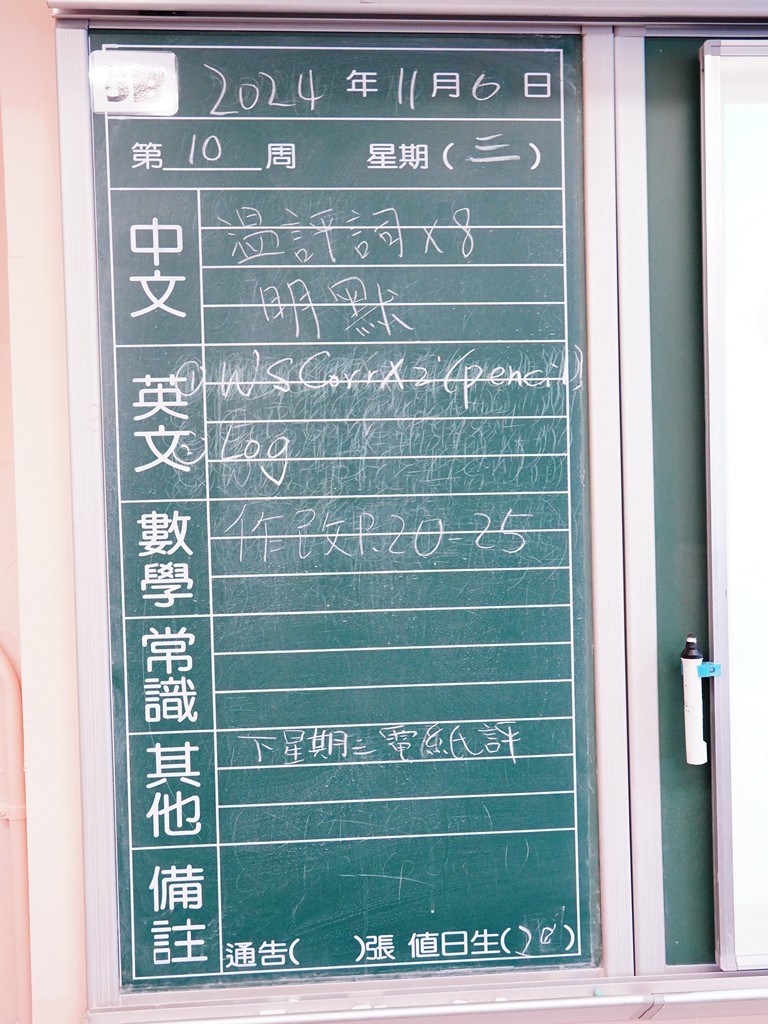 2024年11月6日
第10周 星期(三)
中文
温評詞x8
明默
英文
① WS Corr X 2 (pencil)
② Log
數學
作改P.20-25
常識
其他
下星期三電紙評
備註
通告( )張 值日生( )